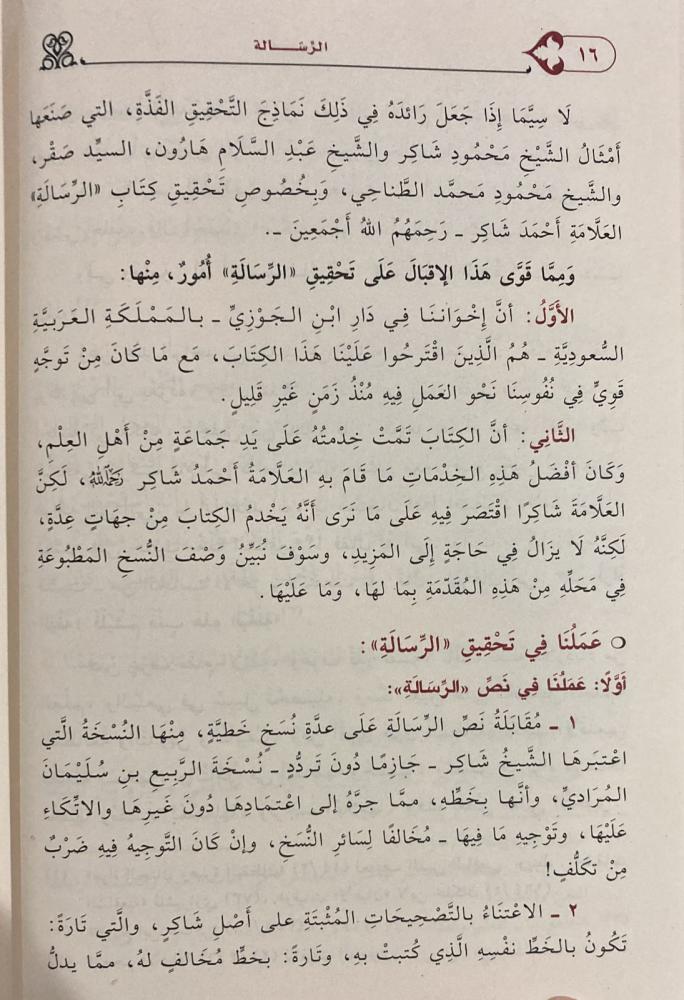 ١٦
الرِّسَـــالة
لَا سِيَّمَا إِذَا جَعَلَ رَائدَهُ فِي ذَلِكَ نَمَاذِجَ التَّحْقِيقِ الفَذَّةِ، التي صَنَعَها
أَمْثَالُ الشَّيْخِ مَحْمُودِ شَاكِر والشَّيخِ عَبْدِ السَّلَامِ هَارُون، السيِّد صَقْر،
والشَّيخ مَحْمُود مَحمَّد الطَّناحِي، وَبِخُصُوصِ تَحْقِيقِ كِتَابِ «الرِّسَالَةِ»
العَلَّامَةِ أَحْمَدَ شَاكِر ـ رَحِمَهُمُ اللهُ أَجْمَعِينَ ـ.
وَمِمَّا قَوَّى هَذَا الإقبَالَ عَلَى تَحْقِيقِ «الرِّسَالَةِ» أُمُورٌ، مِنْها:
الأَوَّلُ: أنَّ إِخْوَانَنَا فِي دَارِ ابْنِ الجَوْزِيِّ ـ بالمَمْلَكَةِ العَرَبيَّةِ
السُّعودِيَّةِ ـ هُمُ الَّذِينَ اقْتَرحُوا عَلَيْنَا هَذَا الكِتَابَ، مَع مَا كَانَ مِنْ تَوجَّهٍ
قَوِيٍّ فِي نُفُوسِنَا نَحْو العَمَلِ فِيهِ مُنْذُ زَمَنٍ غَيْرِ قَلِيلٍ.
الثَّانِي: أنَّ الكِتَابَ تَمَّتْ خِدْمتُهُ عَلَى يَدِ جَمَاعَةٍ مِنْ أَهْلِ العِلْمِ،
وَكَانَ أفْضَلُ هَذِهِ الخِدْمَاتِ مَا قَامَ بِهِ العَلَّامَةُ أَحْمَدُ شَاكِر رَحِمَهُ اللهُ، لَكِنَّ
العَلَّامَةَ شَاكِرًا اقْتَصَرَ فِيهِ عَلَى مَا نَرَى أَنَّهُ يَخْدمُ الكِتابَ مِنْ جهَاتٍ عِدَّةٍ،
لَكِنَّهُ لَا يزَالُ فِي حَاجَةٍ إِلَى المَزِيدِ، وسَوْفَ نُبَيِّنُ وَصْفَ النُّسَخِ المَطْبُوعَةِ
فِي مَحَلِّهِ مِنْ هَذِهِ المُقَدّمَةِ بِمَا لهَا، وَمَا عَلَيْهَا.
○ عَمَلُنَا فِي تَحْقِيقِ «الرِّسَالَةِ»:
أَوَّلًا: عَمَلُنَا فِي نَصِّ «الرِّسَالَةِ»:
١ ـ مُقَابَلَةُ نَصِّ الرِّسَالَةِ عَلَى عدَّةِ نُسَخٍ خَطيَّةٍ، مِنْهَا النُّسْخَةُ الَّتي
اعْتبَرَهَا الشَّيخُ شَاكِر ـ جَازِمًا دُونَ تَردُّدٍ ـ نُسْخَةَ الرَّبِيعِ بنِ سُلَيْمَانَ
المُرَاديِّ، وأنَّها بِخَطِّهِ، ممَّا جرَّهُ إلى اعْتمَادِهَا دُونَ غَيرِهَا والاتِّكَاءِ
عَلَيْهَا، وتَوْجِيهِ مَا فِيهَا ـ مُخَالفًا لِسَائرِ النُّسَخِ، وإنْ كَانَ التَّوجِيهُ فِيهِ ضَرْبٌ
مِنْ تكَلُّفٍ!
٢ ـ الاعْتنَاءُ بالتَّصْحِيحَاتِ المُثْبتَةِ على أَصْلِ شَاكِرٍ، والَّتي تَارَةً:
تَكُونُ بالخَطِّ نَفْسِهِ الَّذِي كُتبتْ بهِ، وتَارةً: بخَطٍّ مُخَالفٍ لهُ، ممَّا يدلُّ